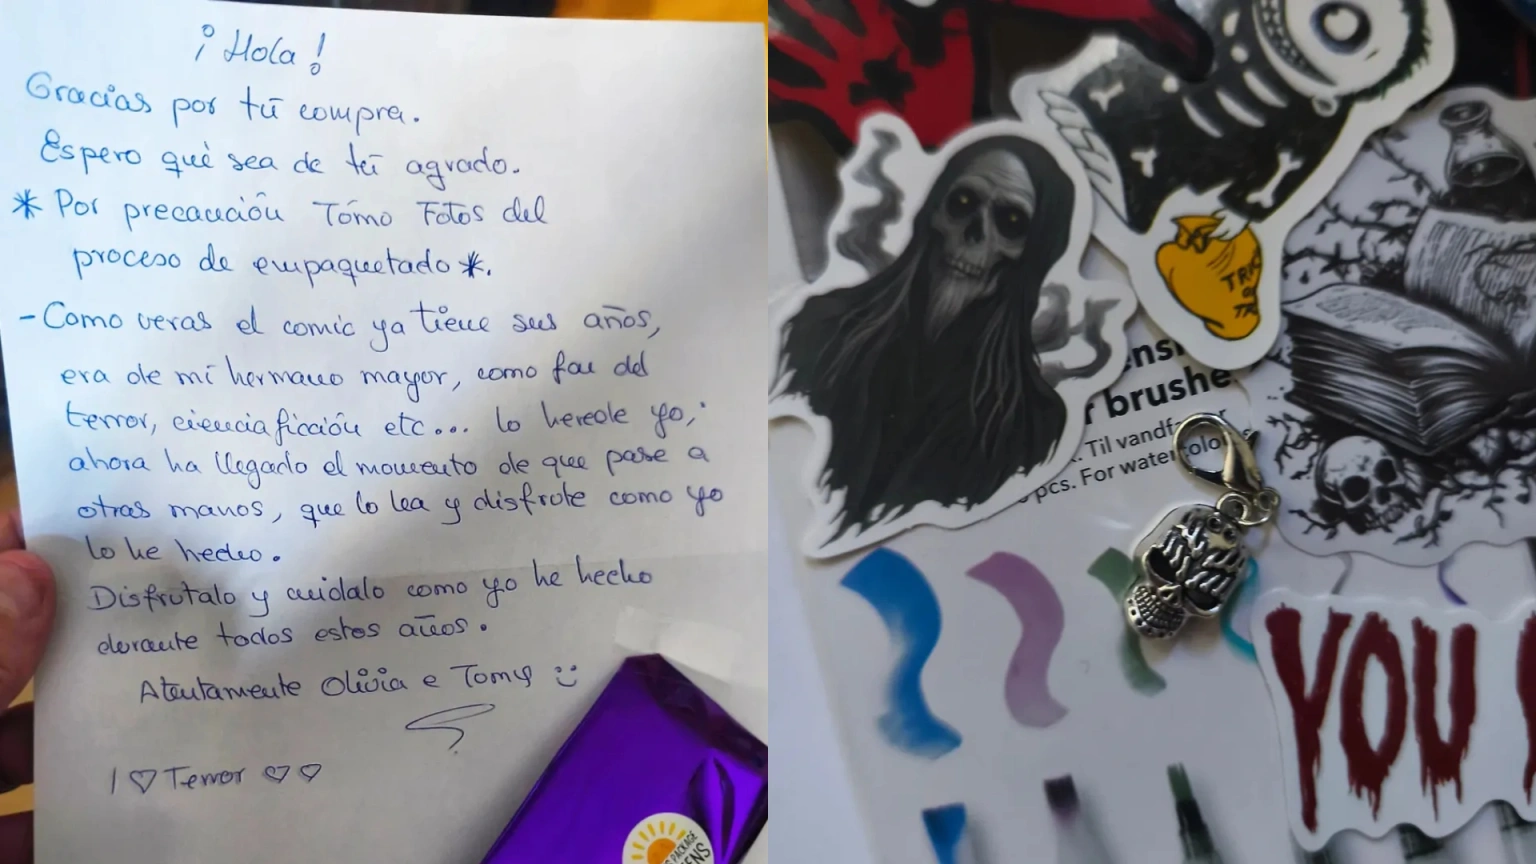 ¡Hola!
Gracias por tú compra.
Espero qué sea de tú agrado.
* Por precaución Tómo Fotos del
proceso de empaquetado *.
- Como veras el comic ya tiene sus años,
era de mi hermano mayor, como fau del
terror, ciencia ficción etc... lo herede yo,
ahora ha llegado el momento de que pase a
otras manos, que lo lea y disfrute como yo
lo he hecho.
Disfrutalo y cuidalo como yo he hecho
durante todos estos años.
Atentamente Olivia e Tomy
I ♡ Terror ♡ ♡
PACKAGE
TRIC
TR
brushe
Til vandf
pcs. For watercolo
YOU